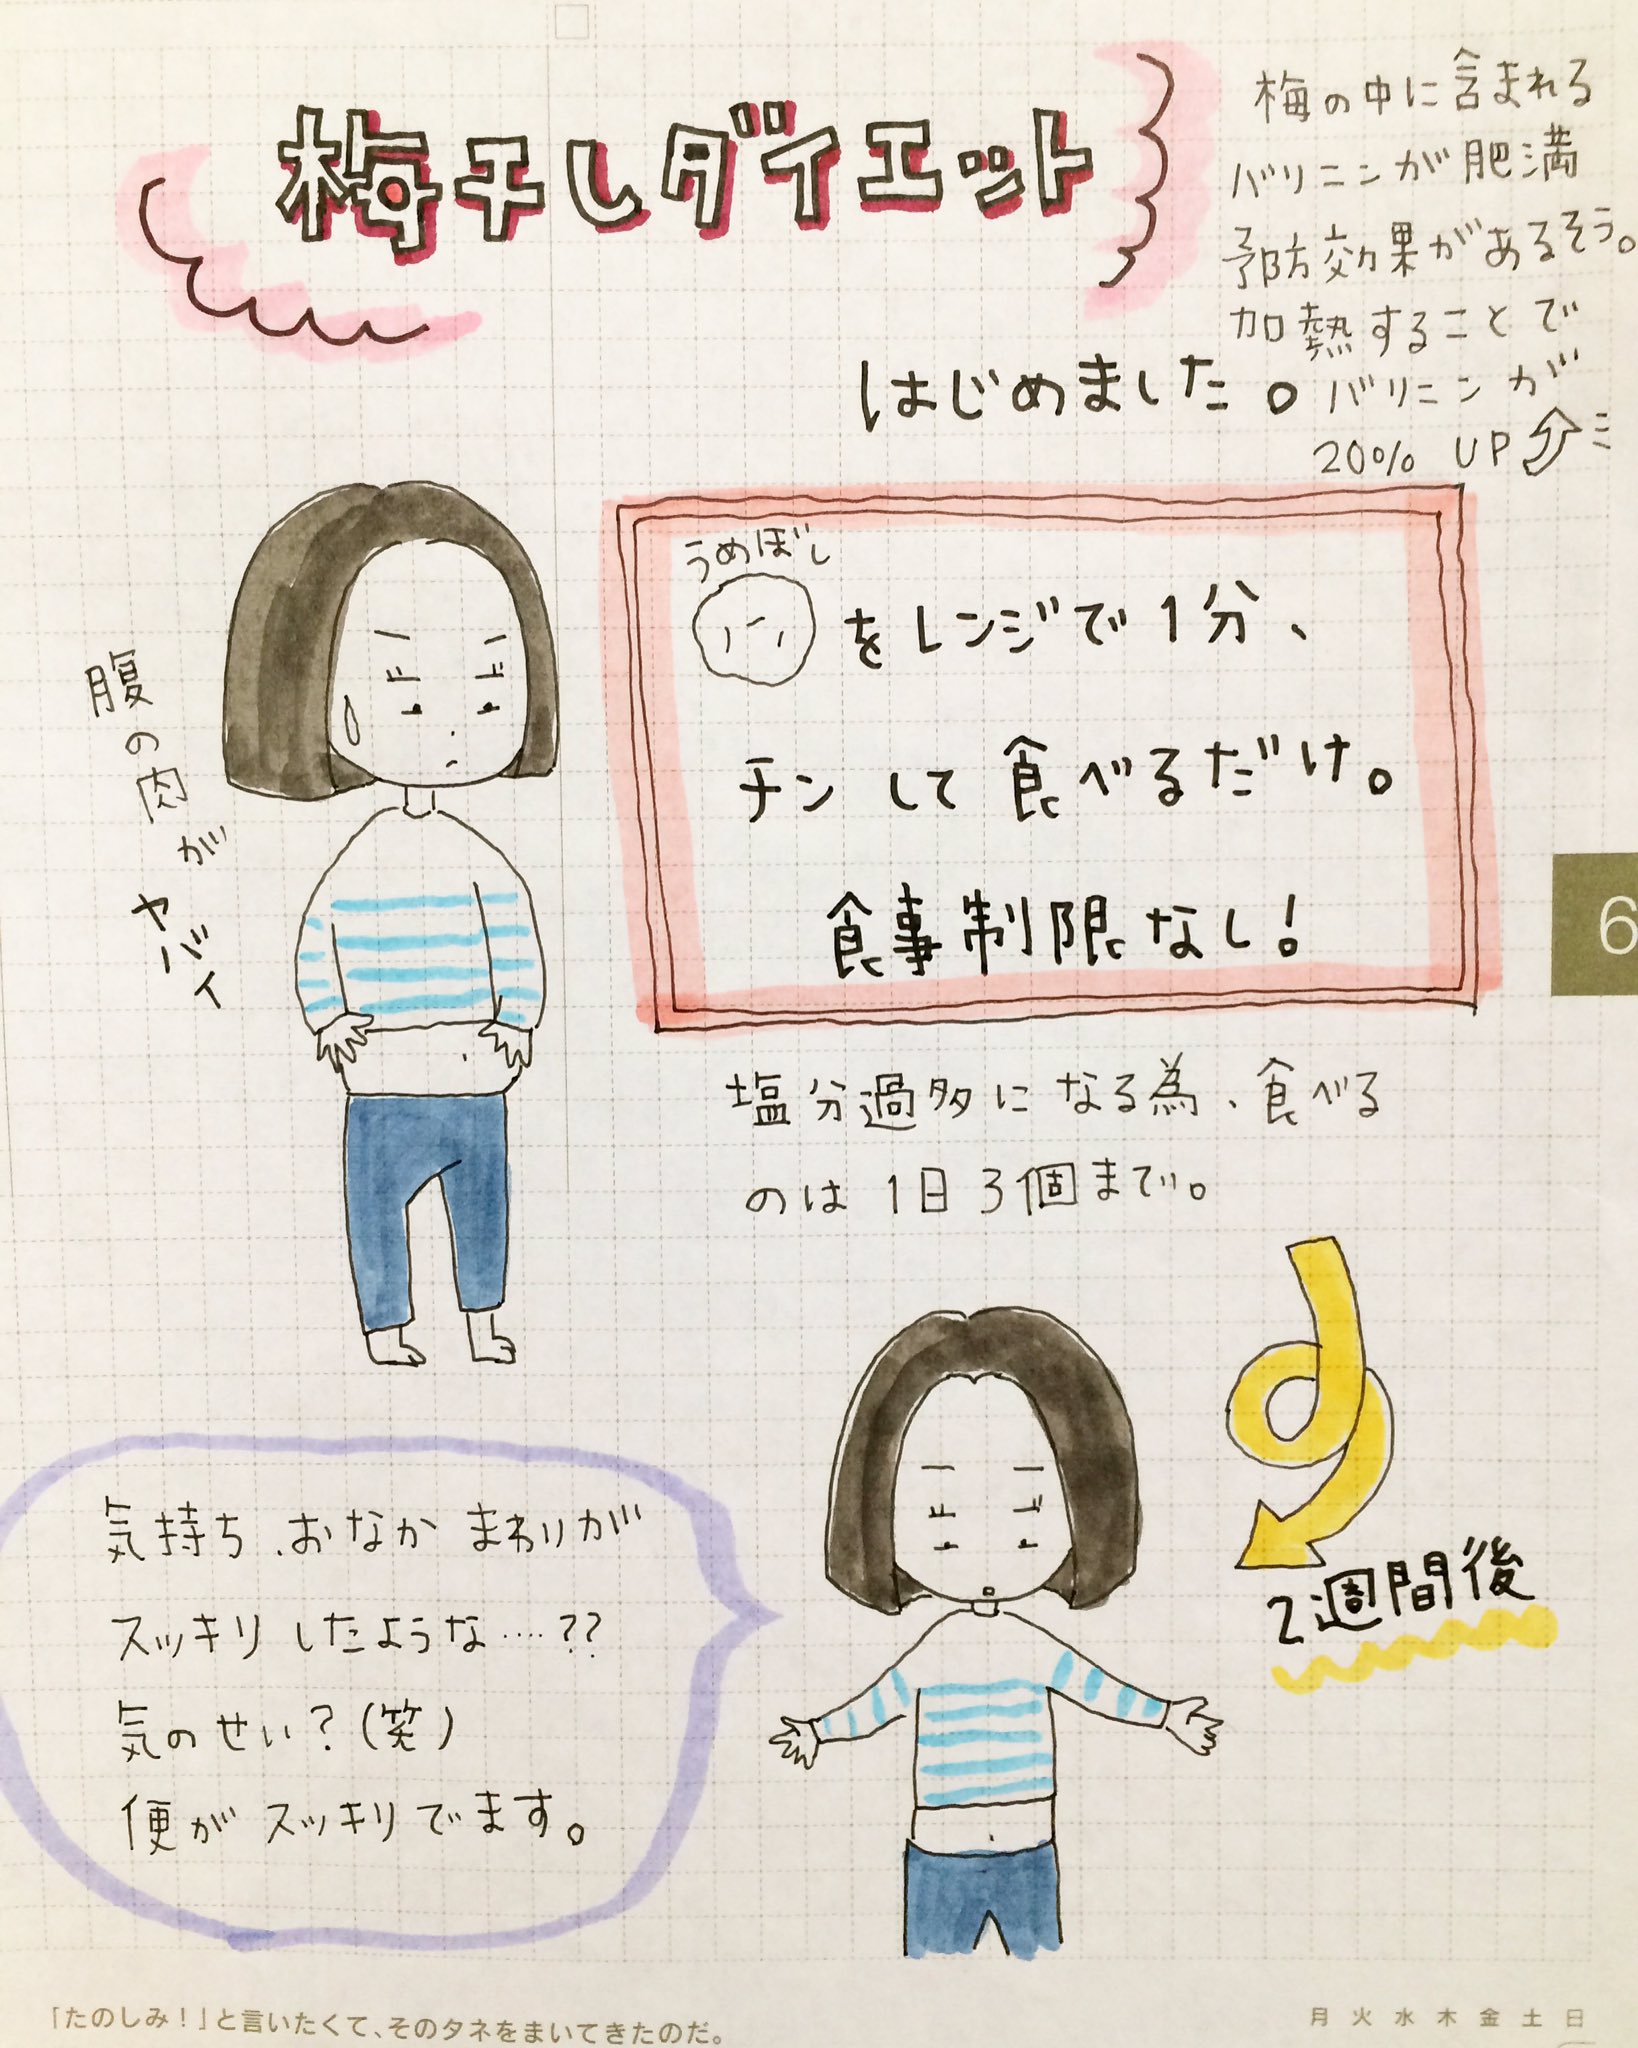 梅干しダイエット
はじめました。
梅の中に含まれる
バリニンが肥満
予防効果があるそう。
加熱することで
バリニンが
20% UP
腹の肉がヤバイ
うめぼし
をレンジで1分、
チンして食べるだけ。
食事制限なし!
塩分過多になる為、食べる
のは1日3個まで。
2週間後
気持ち、おなかまわりが
スッキリしたような....??
気のせい?(笑)
便がスッキリでます。
6
「たのしみ!」と言いたくて、そのタネをまいてきたのだ。
月 火 水 木 金 土 日